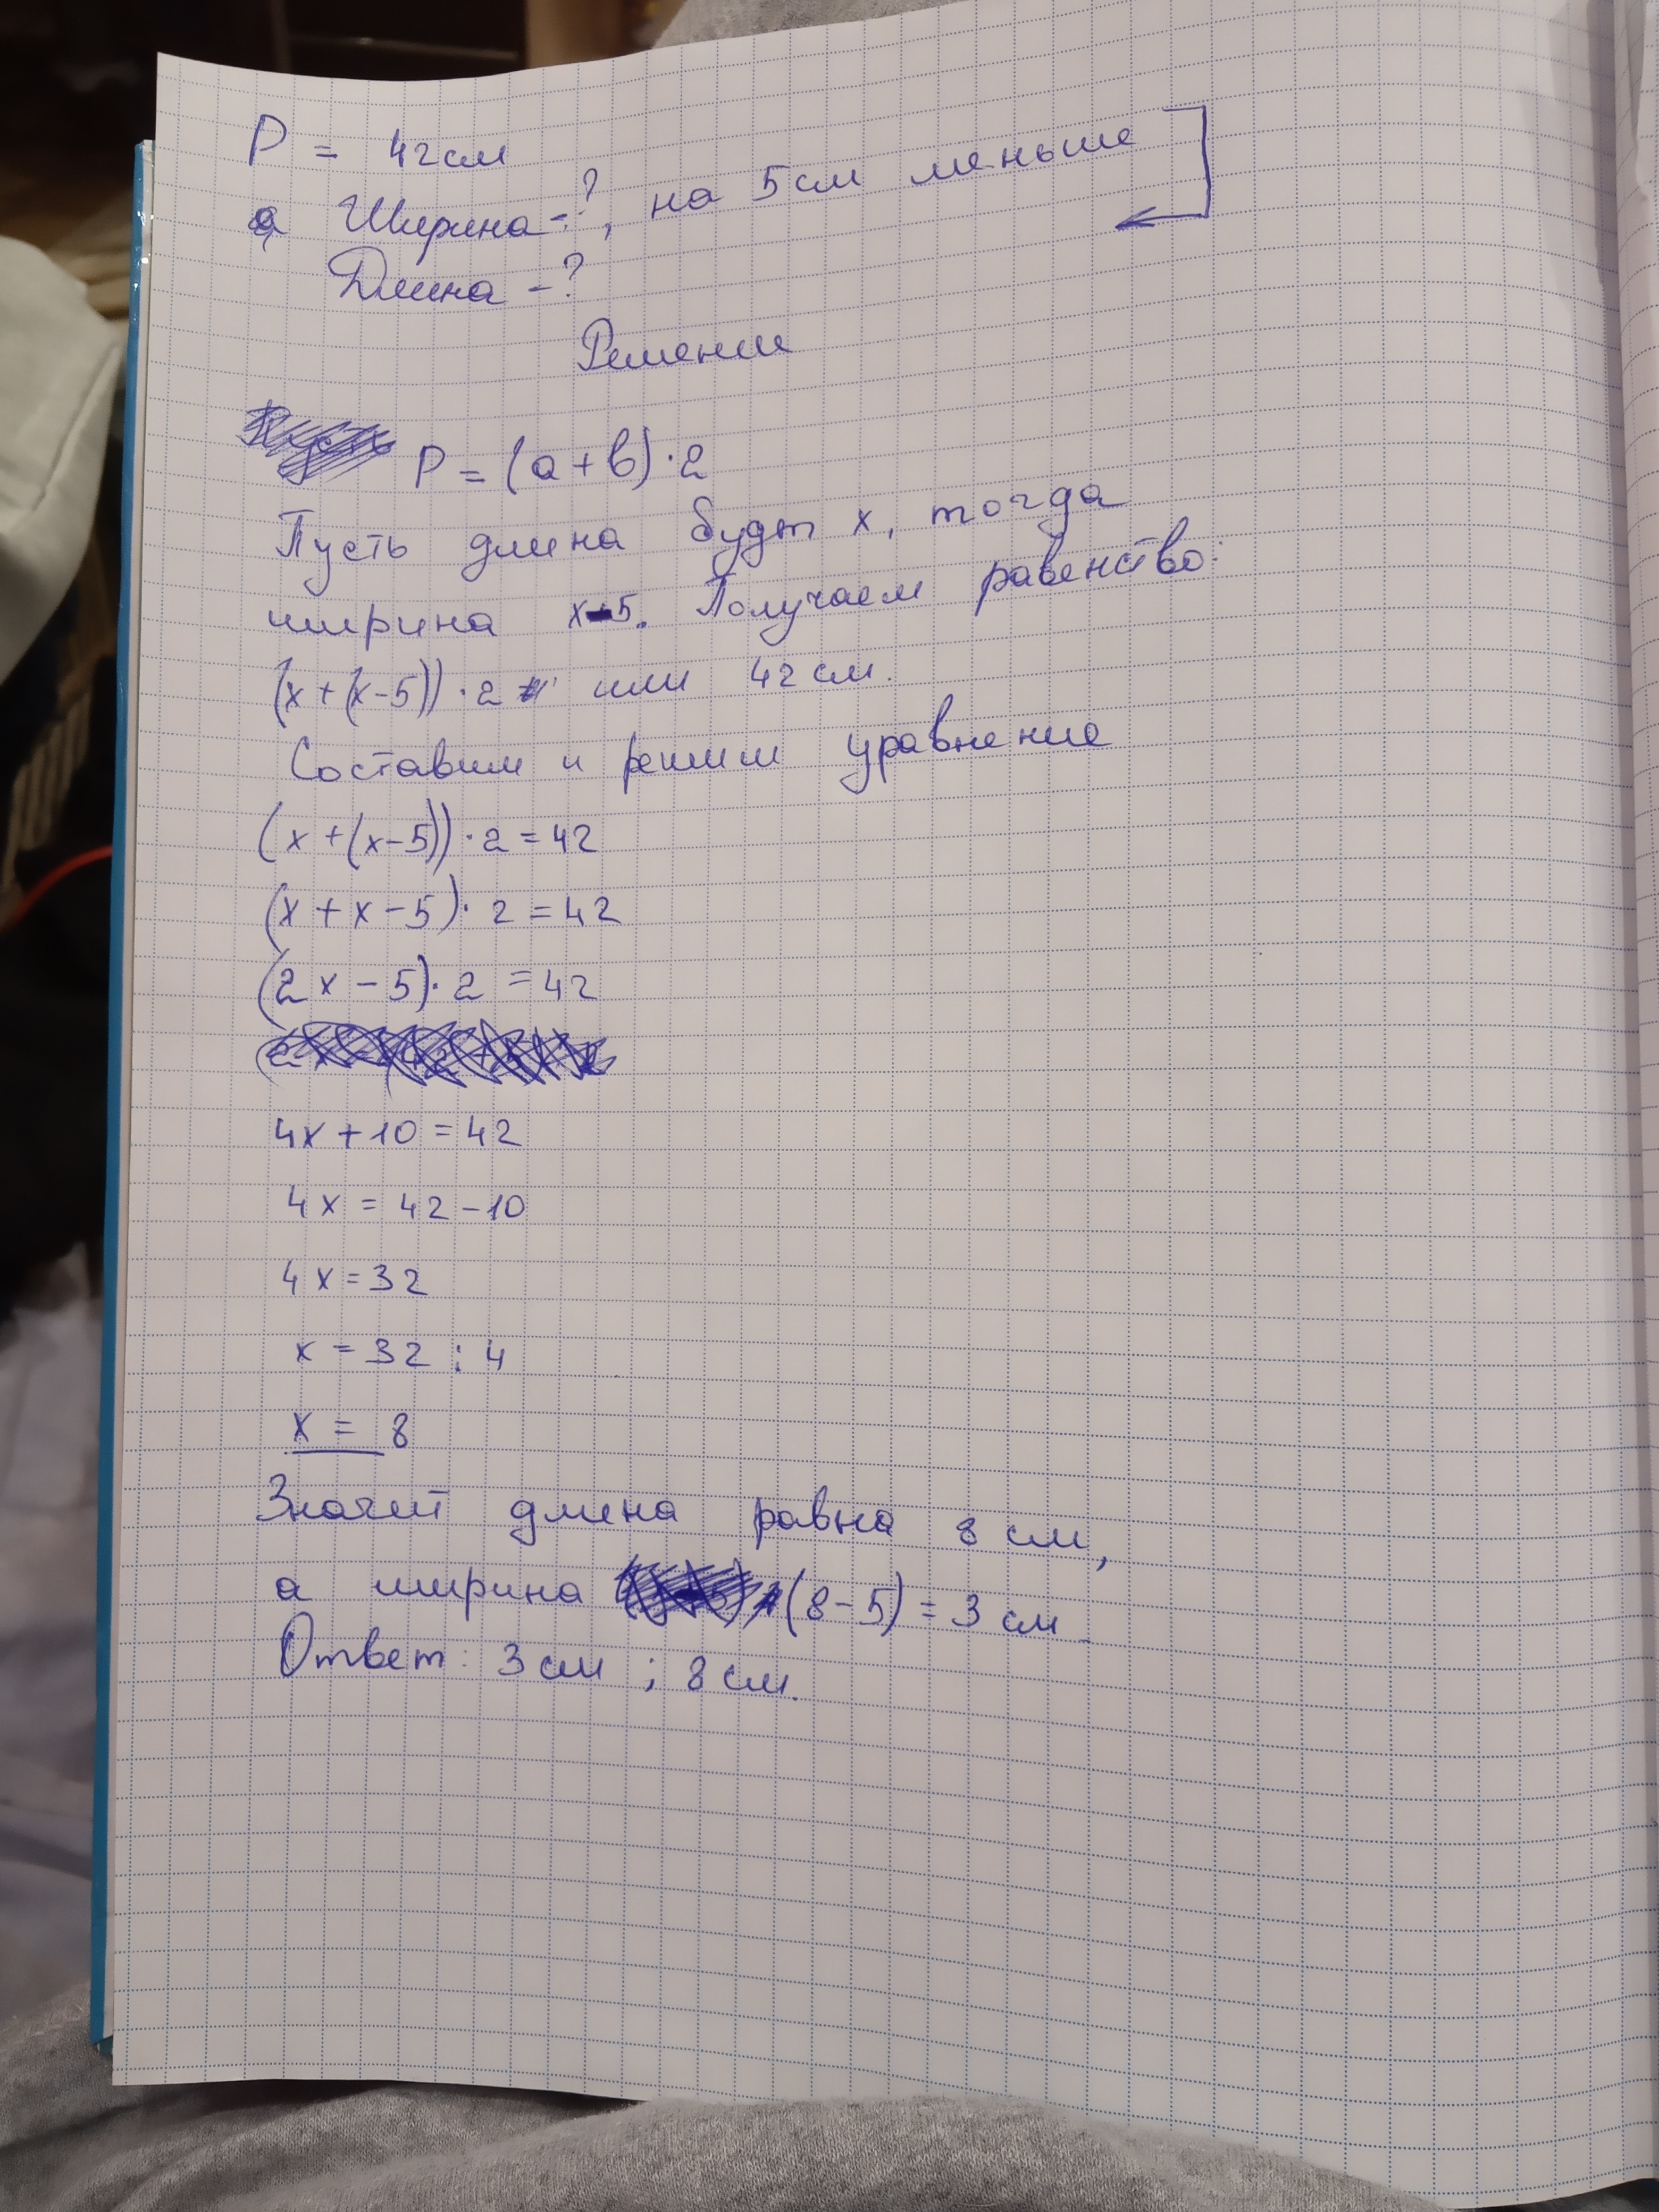 P = 42 см
а Ширина - ?, на 5 см меньше
Длина - ?
Решение
P = (a + b) · 2
Пусть длина будет x, тогда
ширина x - 5. Получаем равенство:
(x + (x - 5)) · 2 или 42 см.
Составим и решим уравнение
(x + (x - 5)) · 2 = 42
(x + x - 5) · 2 = 42
(2x - 5) · 2 = 42
4x + 10 = 42
4x = 42 - 10
4x = 32
x = 32 : 4
x = 8
Значит длина равна 8 см,
а ширина (8 - 5) = 3 см
Ответ: 3 см ; 8 см.